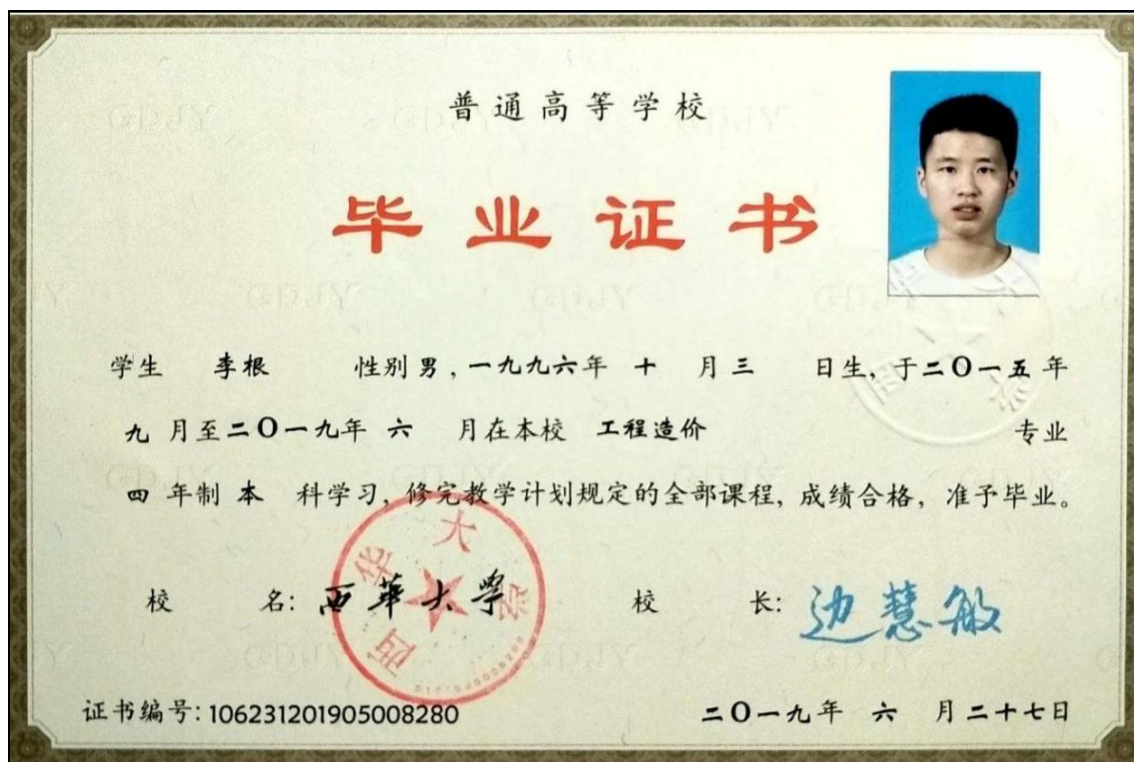 普通高等学校
毕业证书
学生 李根 性别 男，一九九六年 十 月 三 日生，于二〇一五年
九 月至二〇一九年 六 月在本校 工程造价 专业
四 年制 本 科学习，修完教学计划规定的全部课程，成绩合格，准予毕业。
校 名：西華大學 校 长：边慧敏
西华大学
证书编号：106231201905008280 二〇一九年 六 月二十七日